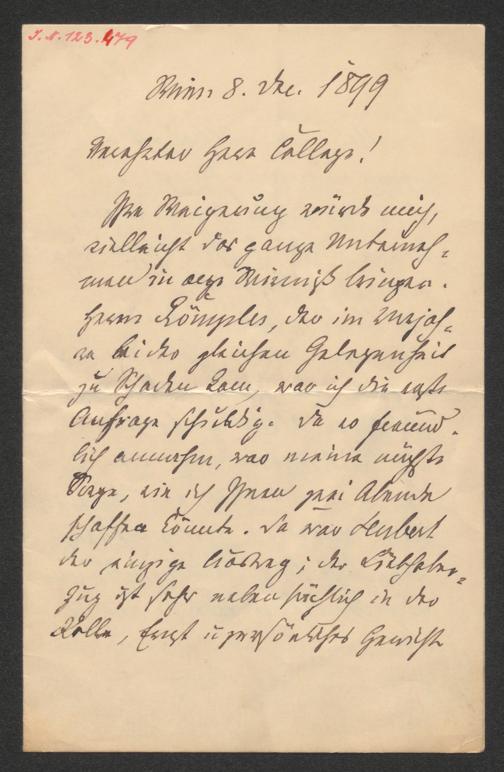 J.N. 123.479
Wien 8. Dec. 1899
Verehrter Herr College!
Ihre Weigerung würde mich,
vielleicht das ganze Unterneh-
men in arge Wirrniß bringen.
Herrn Römpler, der im Vorjah-
re bei der gleichen Gelegenheit
zu Schaden kam, war ich die erste
Anfrage schuldig. Da er freund-
lich annahm, war meine nächste
Sorge, wie ich Ihnen zwei Abende
schaffen könnte. Da war Herbert
der einzige Ausweg; der Liebhaber-
zug ist sehr nebensächlich in der
Rolle, Ernst u persönliches Gewicht